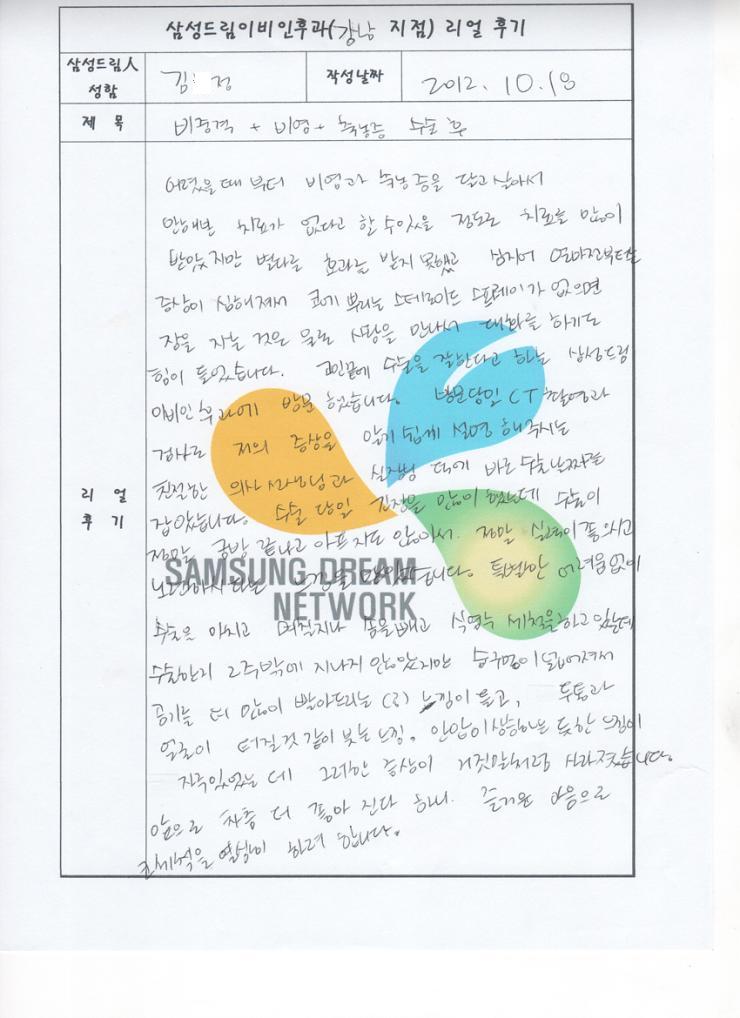 삼성드림이비인후과(강남 지점) 리얼 후기
삼성드림人 성함 김 정 작성날짜 2012. 10. 18
제 목 비중격 + 비염 + 축농증 수술 후
리 얼 후 기
어렸을때 부터 비염과 축농증을 달고 살아서
안해본 치료가 없다고 할 수있을 정도로 치료를 많이
받았지만 별다른 효과를 받지 못했고 심지어 얼마전부터는
증상이 심해져서 코에 뿌리는 스테로이드 스프레이가 없으면
잠을 자는 것은 물론 사람을 만나서 대화를 하기도
힘이 들었습니다. 고민끝에 수술을 잘한다고 하는 삼성드림
이비인후과에 방문 했습니다. 방문당일 CT촬영과
검사로 저의 증상을 알기 쉽게 설명 해주시는
친절한 의사 선생님과 실장님 덕에 바로 수술날짜를
잡았습니다. 수술 당일 긴장을 많이 했는데 수술이
정말 금방 끝나고 아프지도 않아서. 정말 실력이 좋으시고
느낌을 받았습니다. 특별한 어려움없이
SAMSUNG DREAM
NETWORK
수술을 마치고 며칠지나 솜을빼고 식염수 세척을하고 있는데
수술한지 2주밖에 지나지 않았지만 숨구멍이 넓어져서
공기를 더 많이 빨아드리는 (?) 느낌이 들고, 두통과
얼굴이 터질것 같이 붓는 느낌, 안압이상승하는 듯한 느낌이
자주있었는 데 그러한 증상이 거짓말처럼 사라졌습니다.
앞으로 차츰 더 좋아 진다 하니. 즐거운 마음으로
코세척을 열심히 하려 합니다.